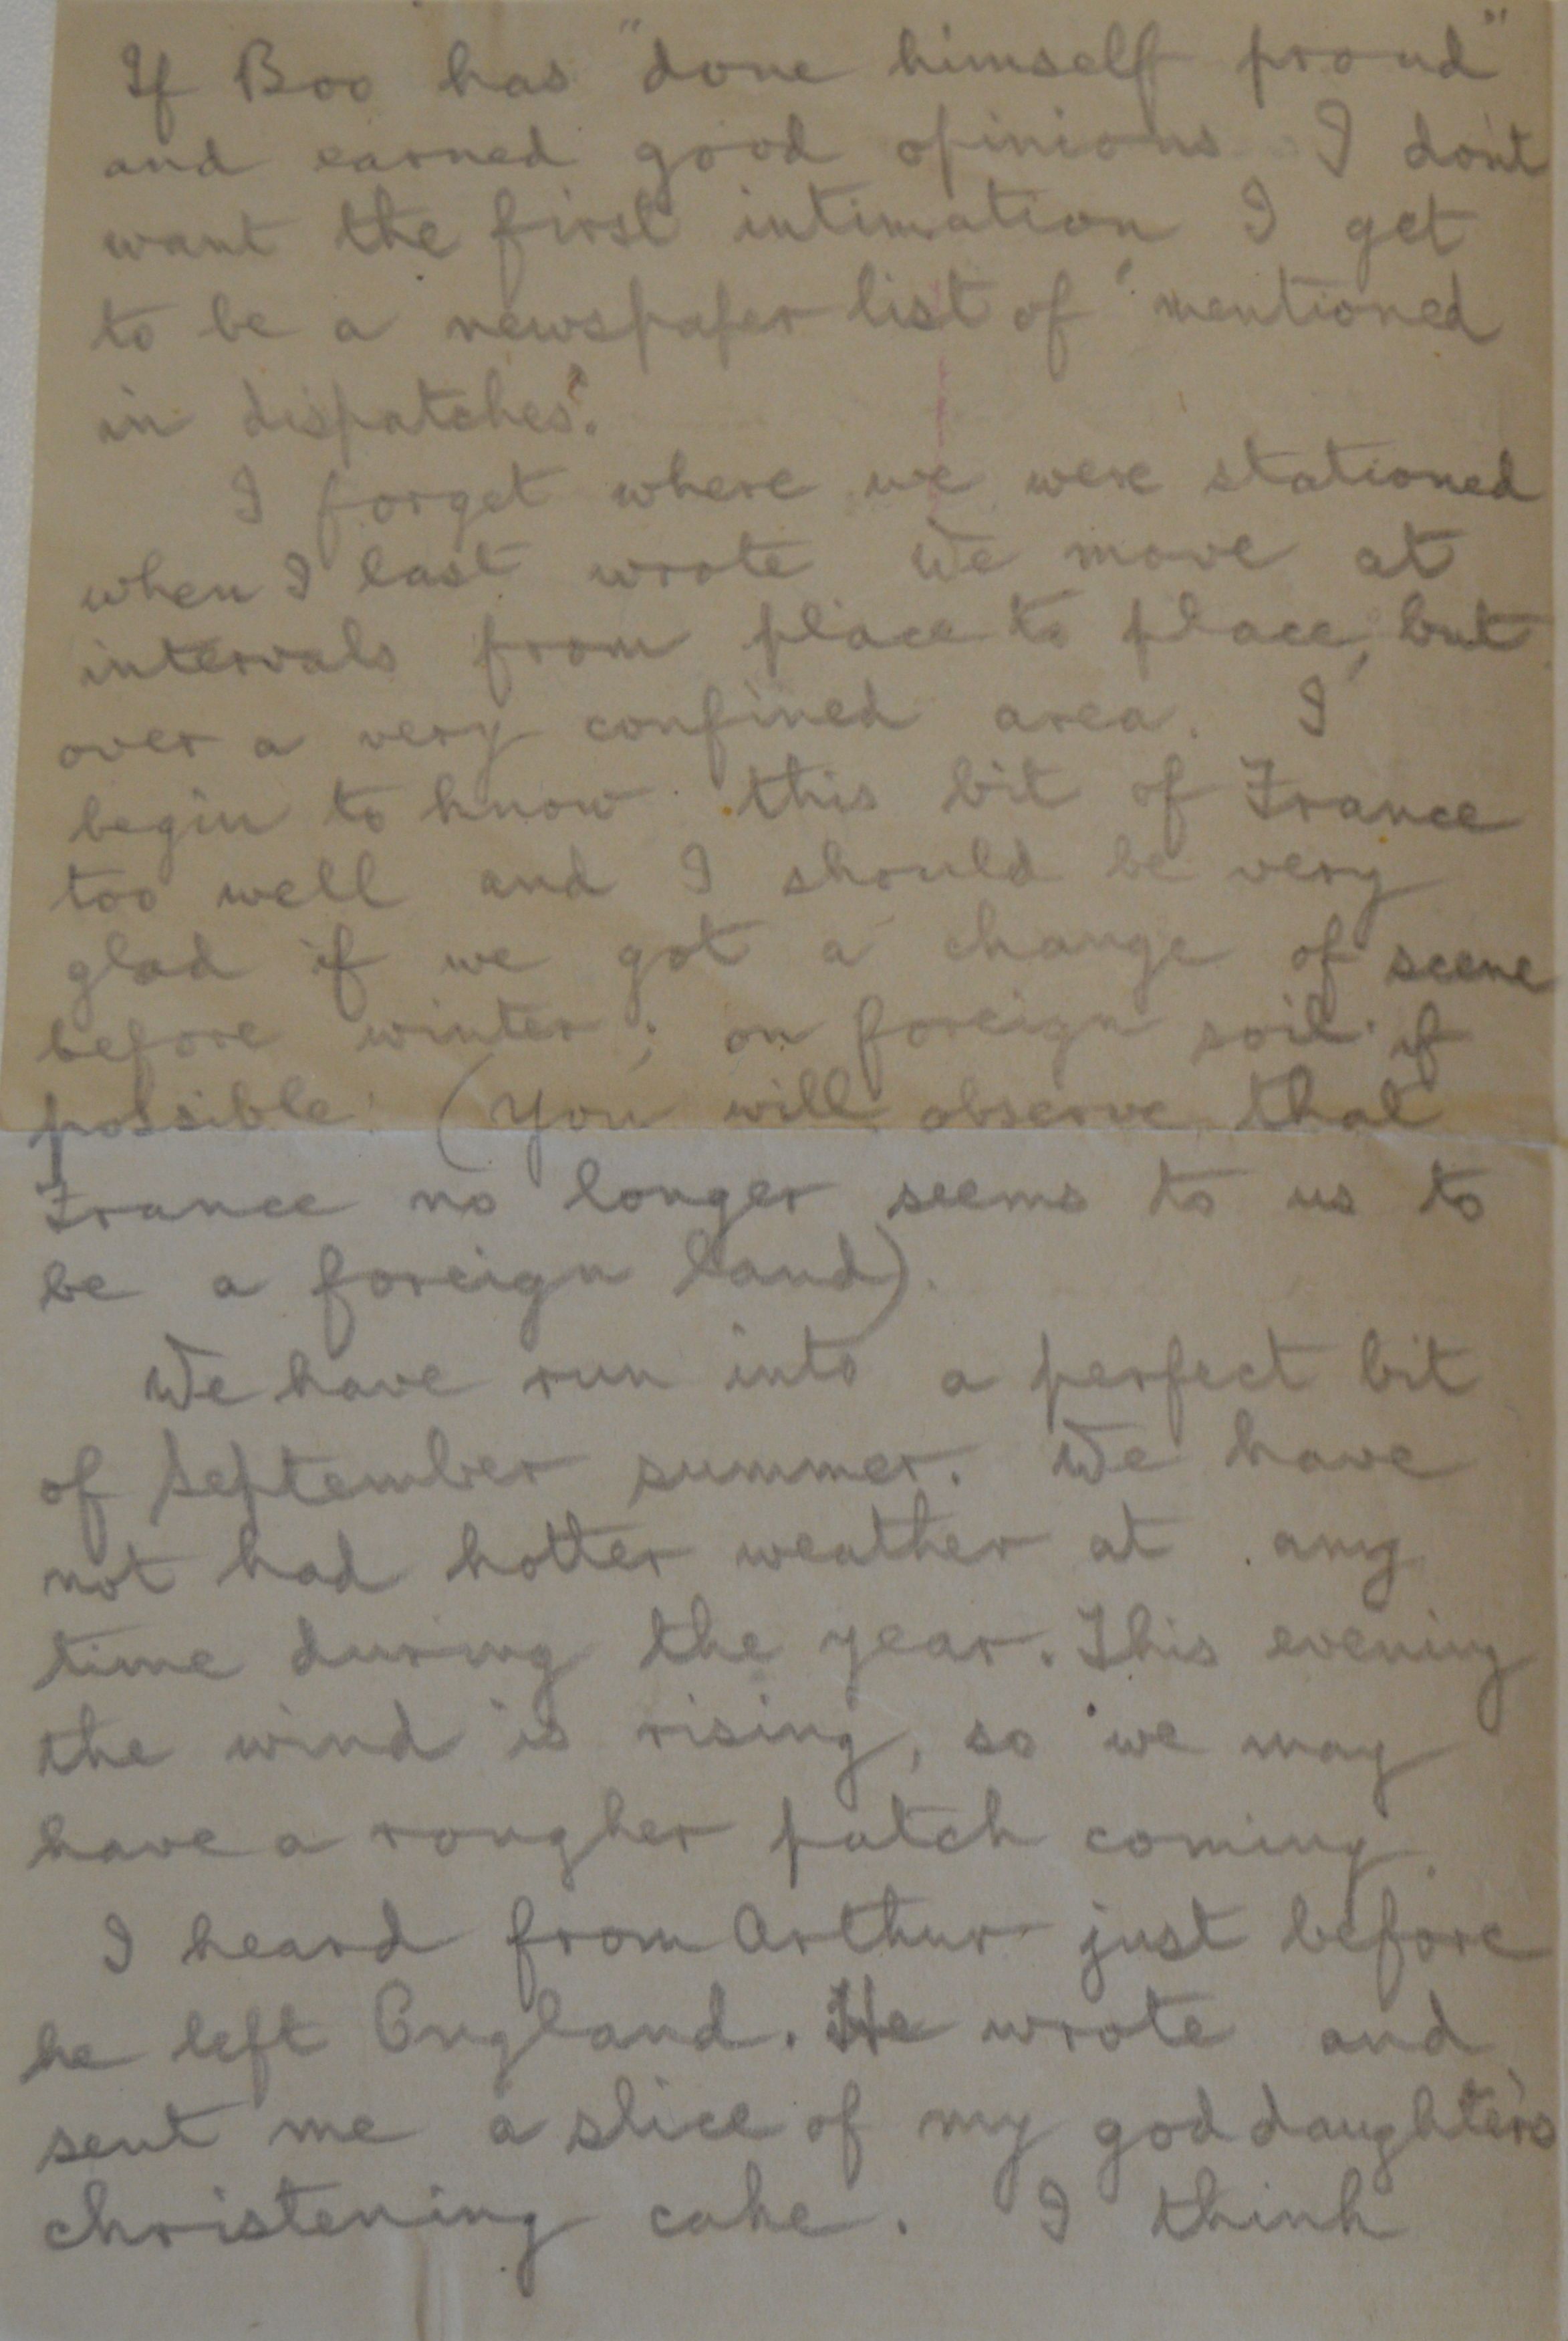 If Boo has "done himself proud"
and earned good opinions I don't
want the first intimation I get
to be a newspaper list of "mentioned
in dispatches".
I forget where we were stationed
when I last wrote We move at
intervals from place to place, but
over a very confined area. I
begin to know this bit of France
too well and I should be very
glad if we got a change of scene
before winter; on foreign soil if
possible. (You will observe that
France no longer seems to us to
be a foreign land).
We have run into a perfect bit
of September summer. We have
not had hotter weather at any
time during the year. This evening
the wind is rising, so we may
have a rougher patch coming.
I heard from Arthur just before
he left England. He wrote and
sent me a slice of my goddaughter's
christening cake. I think